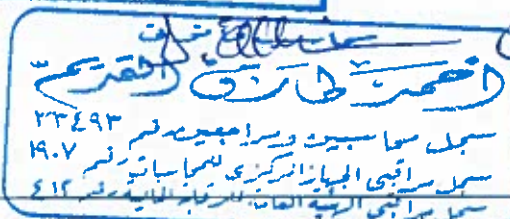 أحمد طارق القريعى
سجل محاسبين ومراجعين رقم ٢٣٤٩٣
سجل مراقبى الجهاز المركزى للمحاسبات رقم ١٩٠٧
سجل مراقبى الهيئة العامة للرقابة المالية رقم ٤١٢